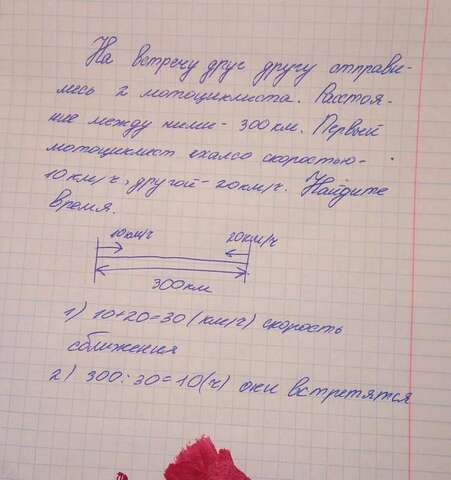 На встречу друг другу отправи-
лись 2 мотоциклиста. Расстоя-
ние между ними - 300 км. Первый
мотоциклист ехал со скоростью-
10 км/ч, другой - 20 км/ч. Найдите
время.
10км/ч 20км/ч
300км
1) 10+20=30 (км/ч) скорость
сближения
2) 300:30=10(ч) они встретятся